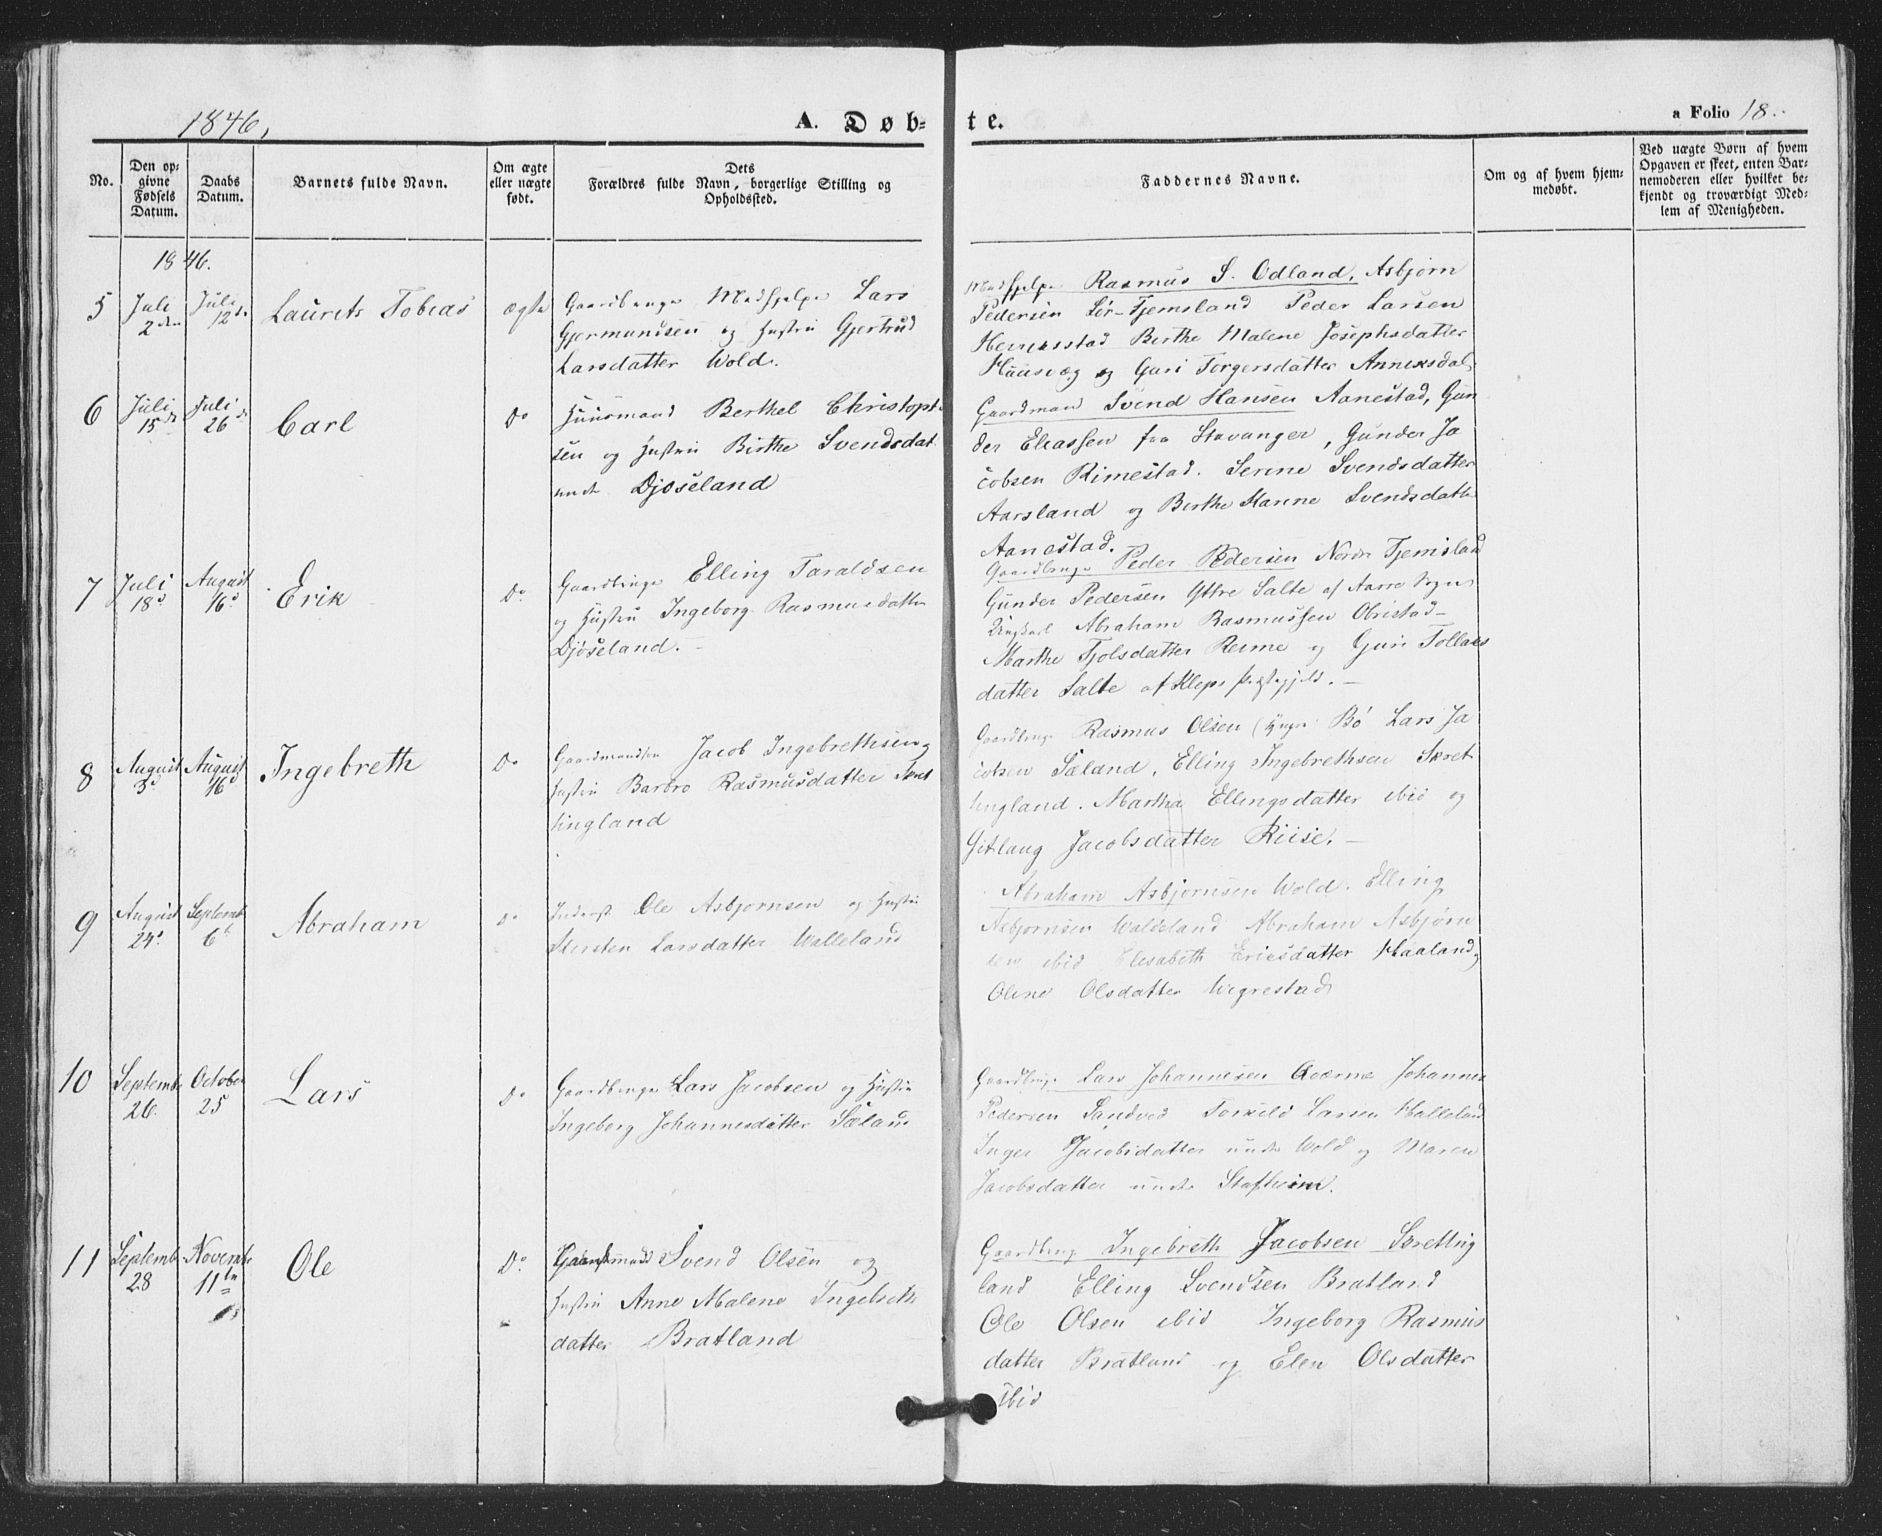 1846,
A. Døb-
te.
a Folio 18.
No.
Den op-
givne
Fødsels
Datum.
Daabs
Datum.
Barnets fulde Navn.
Om ægte
eller uægte
født.
Dets
Forældres fulde Navn, borgerlige Stilling og
Opholdssted.
Faddernes Navne.
Om og af hvem hjem-
medøbt.
Ved uægte Børn af hvem
Opgaven er skeet, enten Bar-
nemoderen eller hvilket be-
kjendt og troværdigt Med-
lem af Menigheden.
1846.
5
Juli
2den
Juli
12te
Laurits Tobias
ægte
Gaardbruger Medhjelper Lars
Gjermundsen og Hustru Gjertrud
Larsdatter Wold.
Medhjelper Rasmus S. Odland, Asbjørn
Pedersen Sør-Tjemsland Peder Larsen
Berthe Malene Josephsdatter
og Guri Torgersdatter
6
Juli
15de
Juli
26de
Carl
Do
Huusmand Berthel Christoph
sen og Hustru Birthe Svendsdat
under Djøseland
Gaardmand Svend Hansen Aanestad, Gun
der Eliassen fra Stavanger, Gunder Ja
cobsen Rimestad. Serine Svendsdatter
Aarsland og Berthe Karine Svendsdatter
Aanestad.
7
Juli
18d
August
16d
Erik
Do
Gaardbruger Elling Taraldsen
og Hustru Ingeborg Rasmusdatter
Djøseland.
Gaardbruger Peder Pedersen Nordre Tjemsland
Gunder Pedersen Yttre Salte af Aarre Sogn
Ungkarl Abraham Rasmussen Obrestad
Marthe Tjolsdatter Reime og Guri Tollaks
datter Salte af Kleps Præstegjeld.
8
August
3d
August
16d
Ingebreth
Do
Gaardmandsen Jacob Ingebrethsen og
Hustru Barbro Rasmusdatter Skret
tingland
Gaardbruger Rasmus Olsen Bø Lars Ja
cobsen Sæland, Elling Ingebrethsen Skret
tingland. Martha Ellingsdatter ibid og
Jacobsdatter Riise.
9
August
24d
Septemb
6te
Abraham
Do
Inderst Ole Asbjørnsen og Hustru
Kirsten Larsdatter Walleland
Abraham Asbjørnsen Wold. Elling
Asbjørnsen Waldeland Abraham Asbjørn
sen ibid Elisabeth Ericsdatter Haaland og
Oline Olsdatter Wigrestad
10
Septemb
26.
October
25
Lars
Do
Gaardbruger Lars Jacobsen og Hustru
Ingeborg Johannesdatter Sæland
Gaardbruger Lars Johannesen Qværne Johannes
Pedersen Sandved Torkild Larsen
Inger Jacobsdatter under Wold og Maren
Jacobsdatter under
11
Septemb
28
Novemb
11te
Ole
Do.
Gaardmand Svend Olsen og
Hustru Anne Malene Ingebreth
datter Bratland
Gaardbruger Ingebreth Jacobsen Skretting
land Elling Svendsen Bratland
Ole Olsen ibid Ingeborg Rasmus
datter Bratland og Elen Olsdatter
ibid